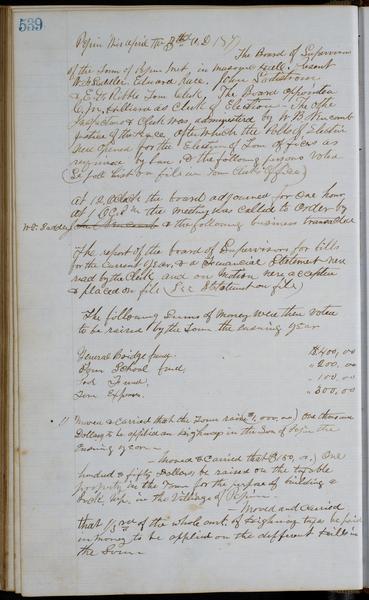 539
Pepin Wis April the 3rd A.D 187
The Board of Supervisors
of the Town of Pepin Met, in masonic Hall. Present
W. H. Sadler, Edward Race, John
& E. H. Town Clerk, The Board appointed
as Clerk of Election. The oath
Inspectors & Clerk was administered by W. B. Newcomb
Justice of the Peace, after which the Polls of Election
were opened for the Election of Town officers as
required by law, & the following persons voted
(See poll list on file in Town Clerks office)
At 12, O Clock the board adjourned for one hour
at 1, O,C, P.m the Meeting was called to order by
W. H. Sadler & the following business transacted
The report of the board of Supervisors for bills
for the current year, & a Financial Statement were
read by the Clerk and on Motion were accepted
& placed on file (See Statement on file)
The following Sums of Money were then voted
to be raised by the Town the ensuing year
General Bridge fund. $400,00
School fund, " 200,00
Fund, " 100,00
Town Expenses. " 300,00
11 Moved & Carried that the Town raise $1,000,00) One thousand
Dollars to be applied on highways in the Town of Pepin the
Ensuing year —
Moved & Carried that $150,00,) One
hundred & fifty Dollars be raised on the taxable
property in the Town for the purpose of building a
in the Village of Pepin —
— Moved and carried
that 1/3rd of the whole amt. of highway tax be paid
in money to be applied on the different hills in
the Town —